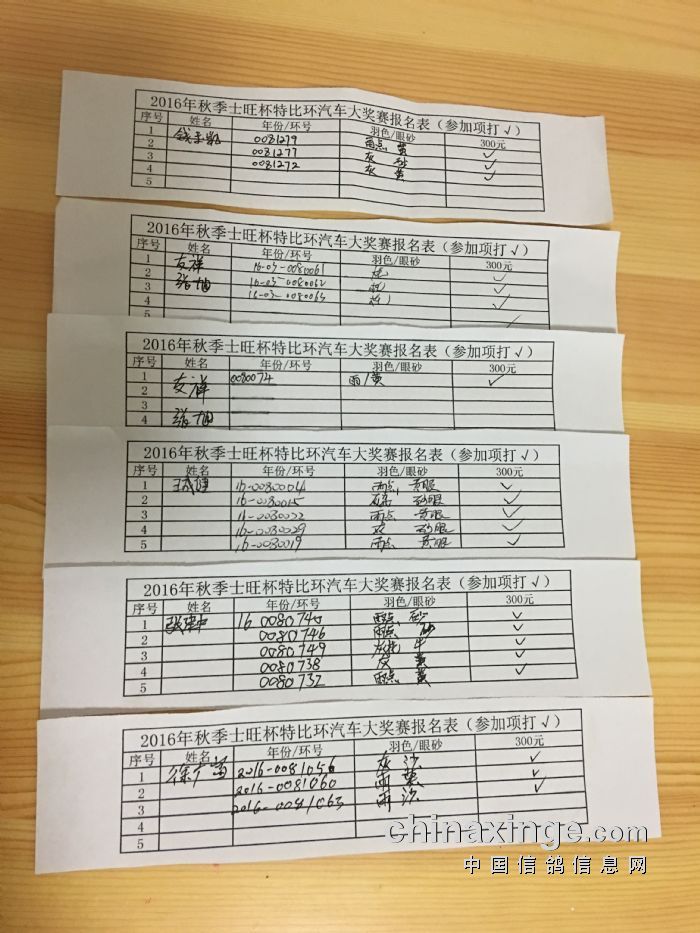 2016年秋季士旺杯特比环汽车大奖赛报名表（参加项打√）
序号 姓名 年份/环号 羽色/眼砂 300元
1 0081279 雨点 黄 √
2 0081277 灰 砂 √
3 0081272 灰 黄 √
4
5
2016年秋季士旺杯特比环汽车大奖赛报名表（参加项打√）
序号 姓名 年份/环号 羽色/眼砂 300元
1 友祥 16-03-0080061 √
2 张旭 16-03-0080062 √
3 16-03-0080063 √
4 √
5
2016年秋季士旺杯特比环汽车大奖赛报名表（参加项打√）
序号 姓名 年份/环号 羽色/眼砂 300元
1 0080074 雨/黄 √
2 友祥
3
4 张旭
2016年秋季士旺杯特比环汽车大奖赛报名表（参加项打√）
序号 姓名 年份/环号 羽色/眼砂 300元
1 16-0080004 雨点 黄眼 √
2 16-0080015 砂眼 √
3 雨点 黄眼 √
4 16-0080029 灰 砂眼 √
5 16-0080019 雨点 黄眼 √
2016年秋季士旺杯特比环汽车大奖赛报名表（参加项打√）
序号 姓名 年份/环号 羽色/眼砂 300元
1 16 雨点 砂 √
2 0080746 雨点 砂 √
3 0080749 牛 √
4 0080738 灰 黄 √
5 0080732 雨点 黄 √
2016年秋季士旺杯特比环汽车大奖赛报名表（参加项打√）
序号 姓名 年份/环号 羽色/眼砂 300元
1 徐广富 2016-0081056 灰 沙 √
2 2016-0081060 雨 黄 √
3 2016-0081063 雨 沙 √
4
5
chinaxinge.com
中国信鸽信息网